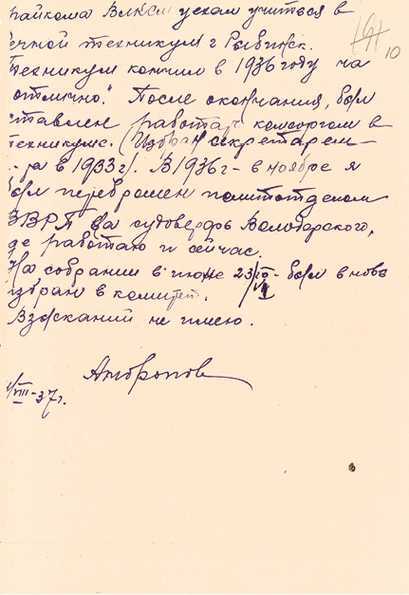 райкома ВЛКСМ уехал учиться в
ечной техникум г Рыбинск.
Техникум кончил в 1936 году на
"отлично". После окончания, был
ставлен работать комсоргом в
техникуме. (Избран секретарем
ра в 1933 г). В 1936 г - в ноябре я
был переброшен политотделом
ВВРП на судоверфь Володарского,
де работаю и сейчас.
На собрании в июне 23/VI - был вновь
избран в комитет.
Взысканий не имею.
Андропов
/VIII-37 г.
10